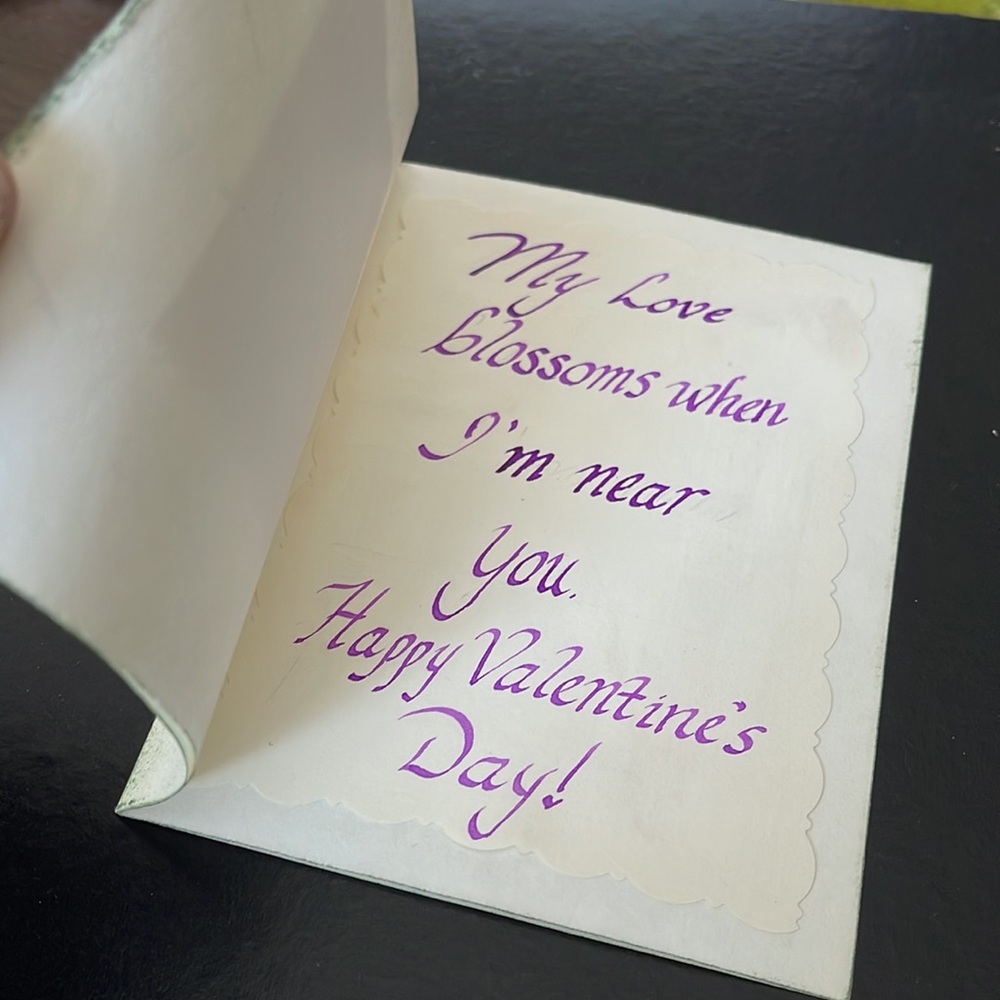 My Love
blossoms when
I'm near
you.
Happy Valentine's
Day!